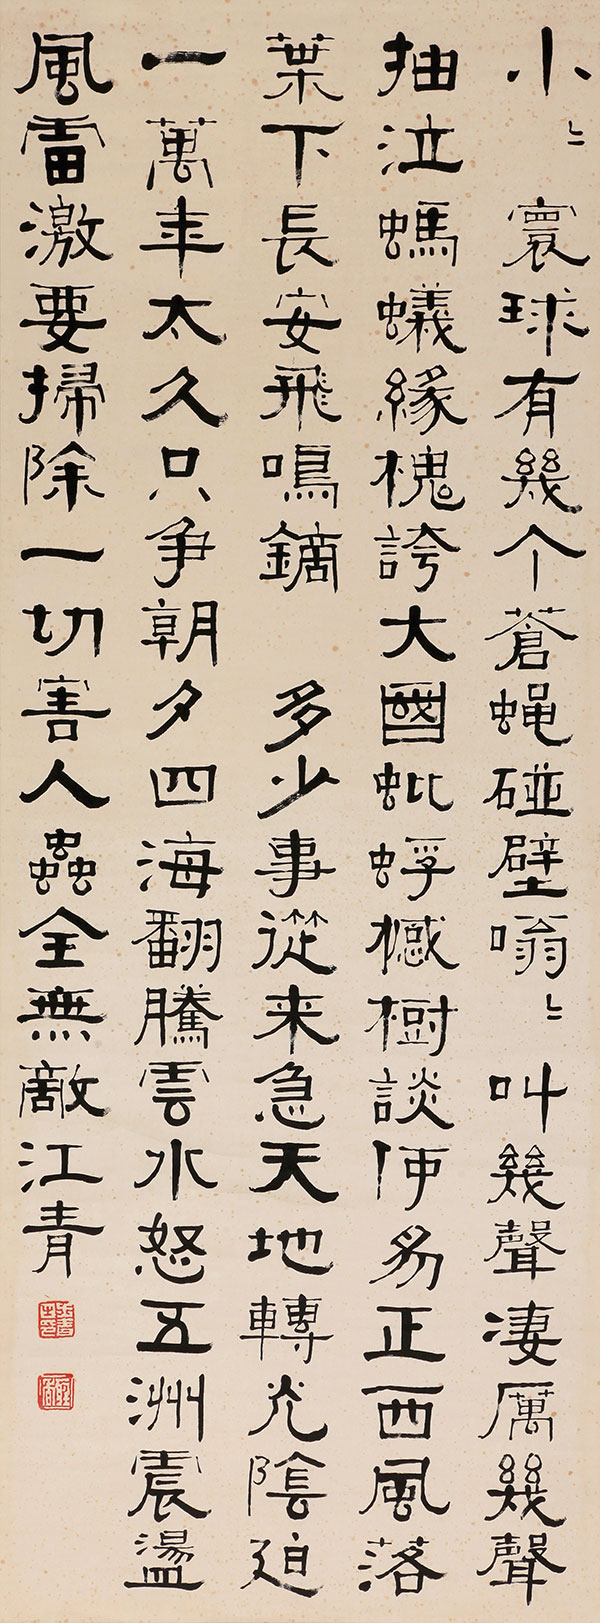 小〻寰球有幾个蒼蝇碰壁嗡〻叫幾聲凄厲幾聲
抽泣螞蟻緣槐誇大國蚍蜉撼樹談何易正西風落
葉下長安飛鳴鏑 多少事從来急天地轉光陰迫
一萬年太久只争朝夕四海翻騰雲水怒五洲震盪
風雷激要掃除一切害人蟲全無敵江青